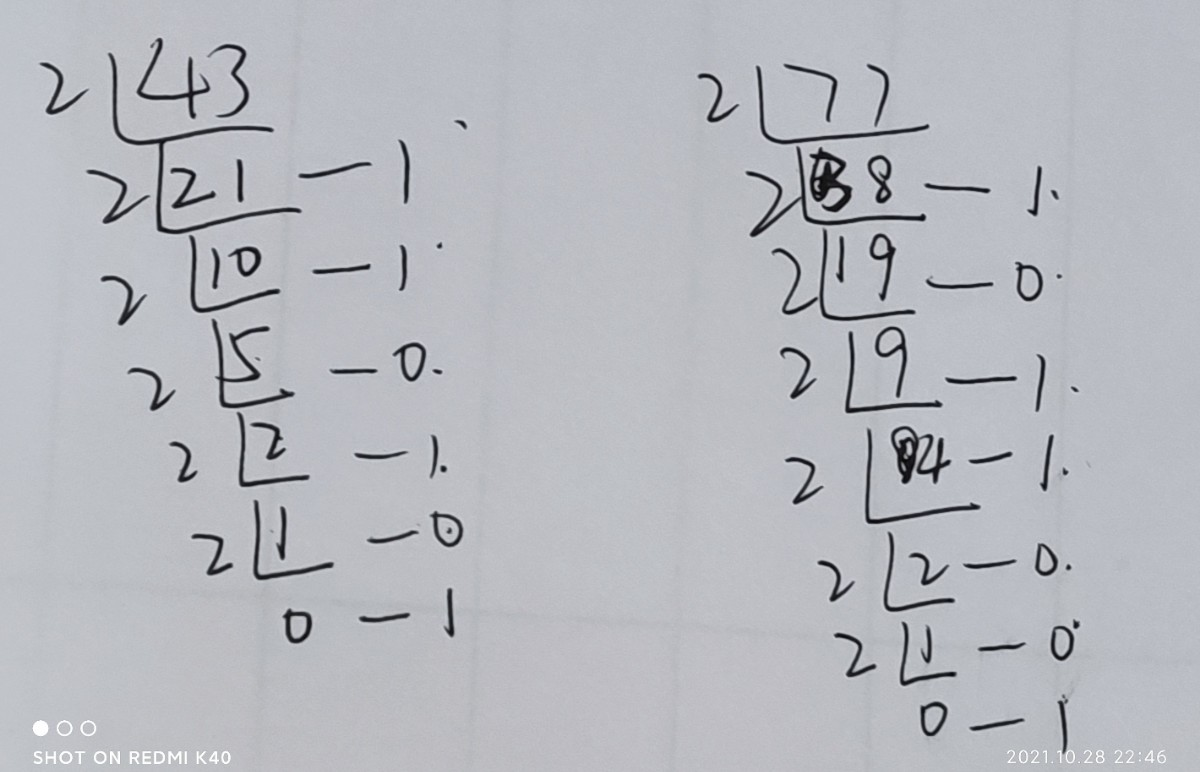 2 43
2 21 — 1
2 10 — 1
2 5 — 0
2 2 — 1
2 1 — 0
0 — 1
2 77
2 38 — 1
2 19 — 0
2 9 — 1
2 4 — 1
2 2 — 0
2 1 — 0
0 — 1
SHOT ON REDMI K40
2021.10.28 22:46